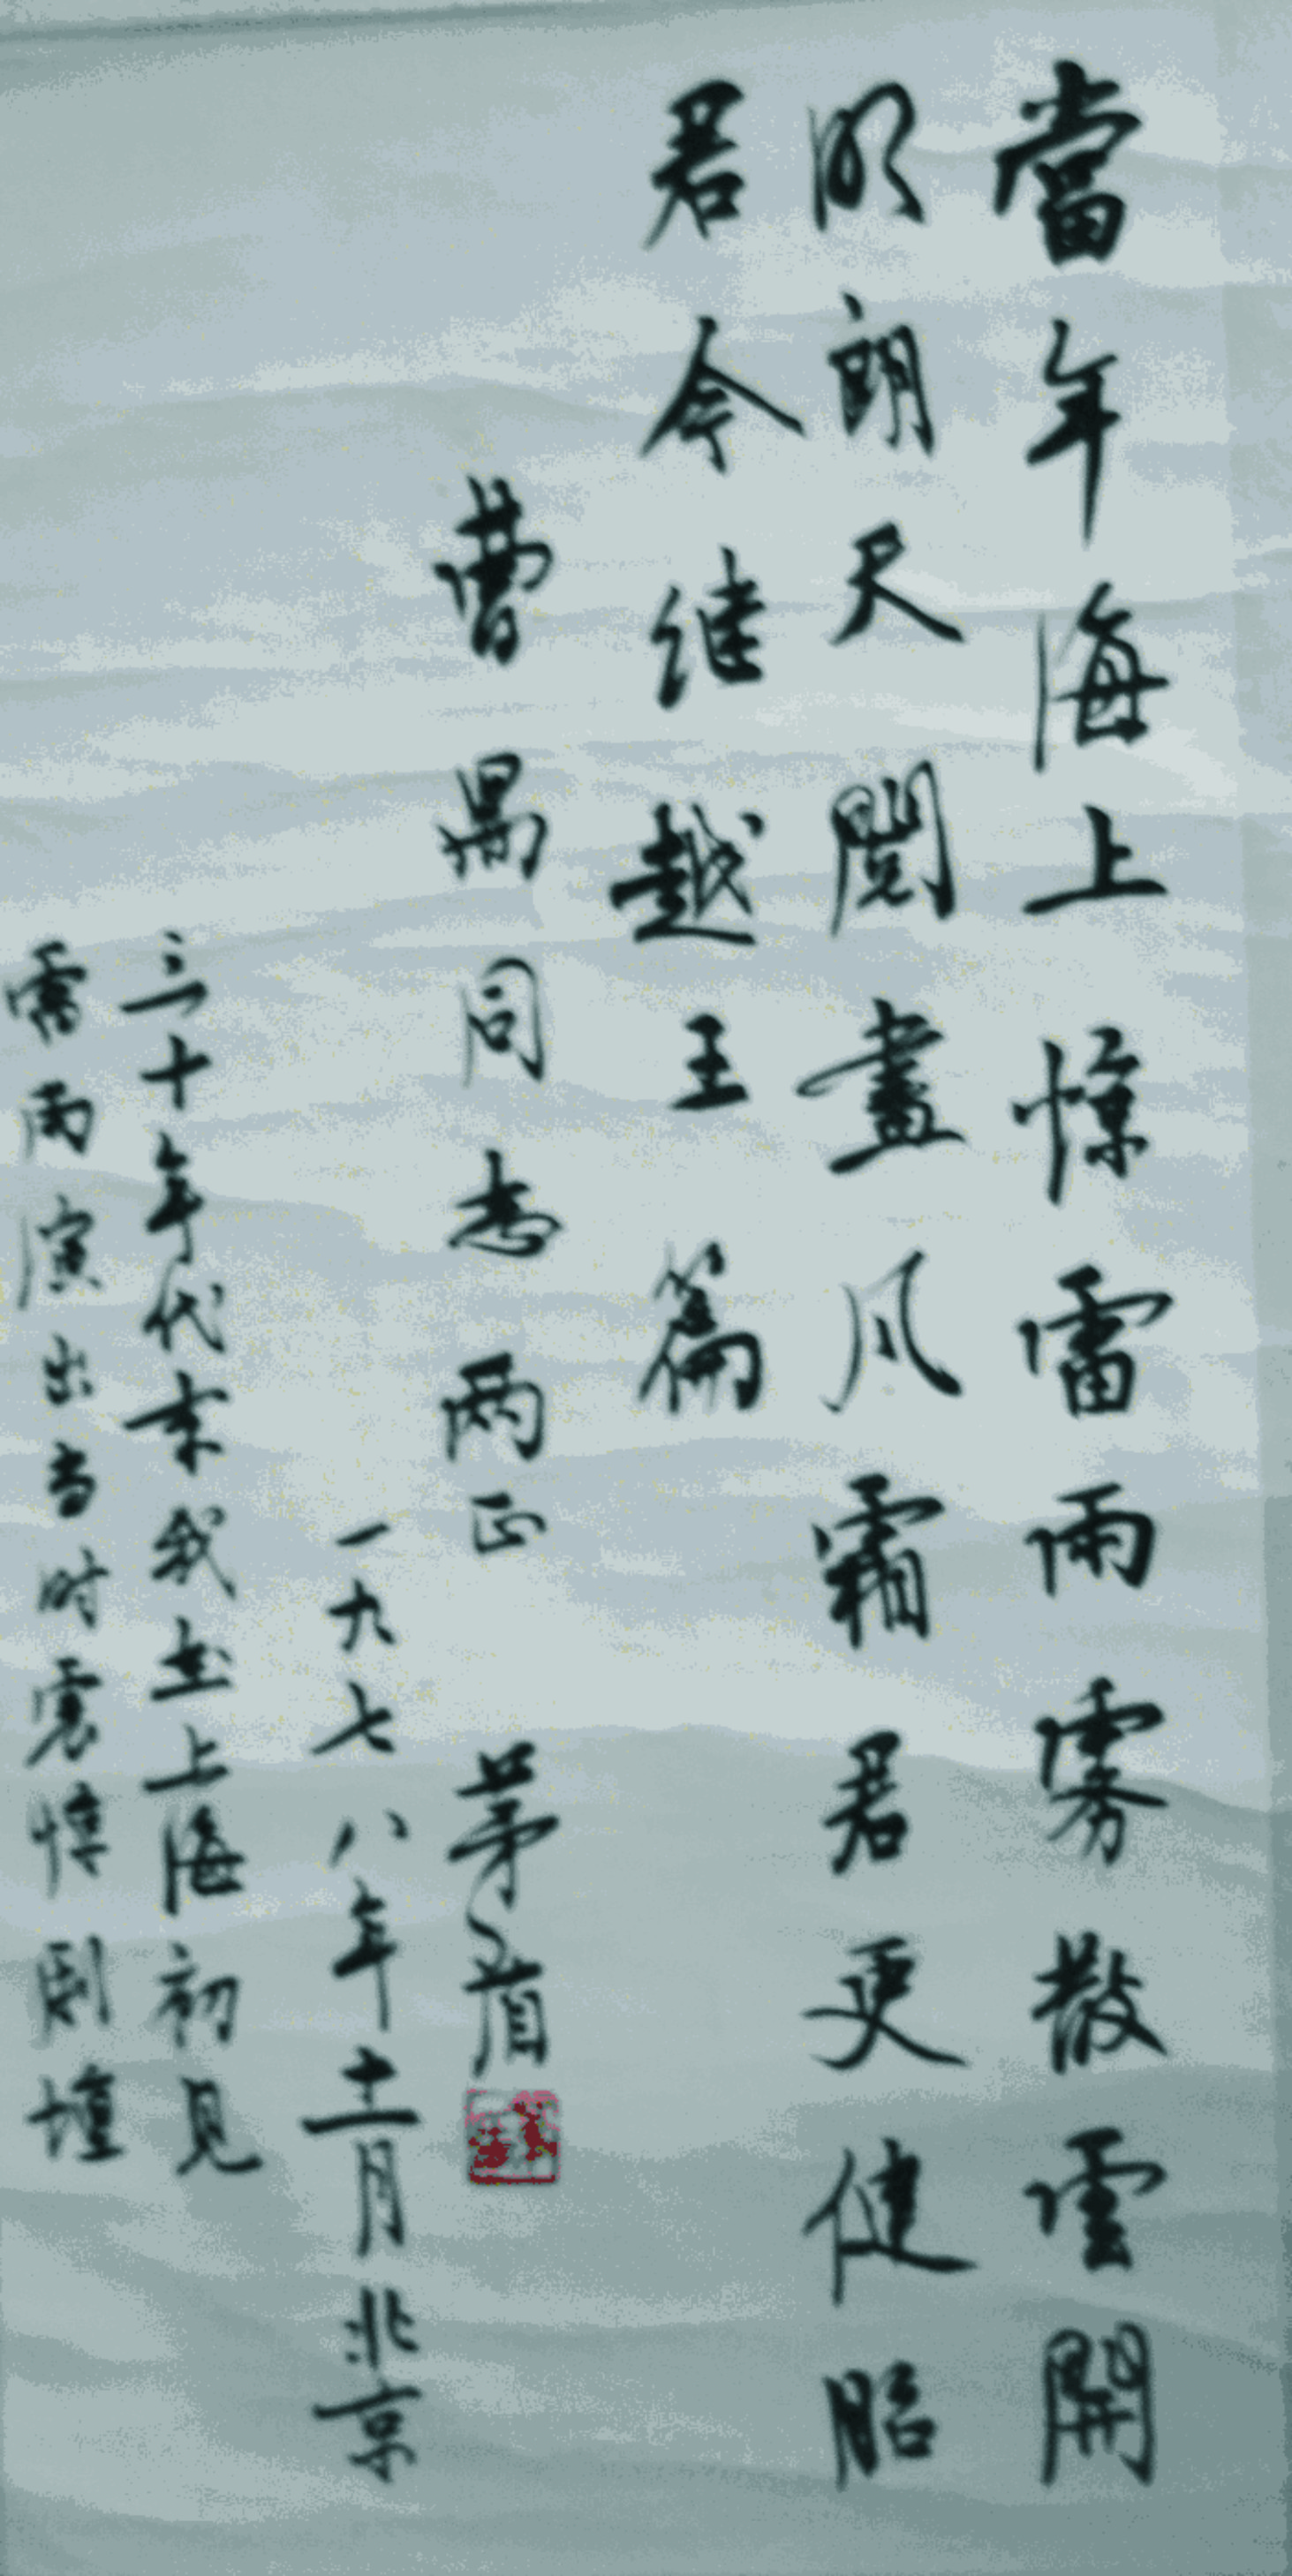 當年海上惊雷雨雾散雲開
明朗天閱盡风霜君更健昭
君今继越王篇
曹禺同志两正 茅盾
一九七八年十一月北京
三十年代末我在上海初見
雷雨演出当时震惊剧壇